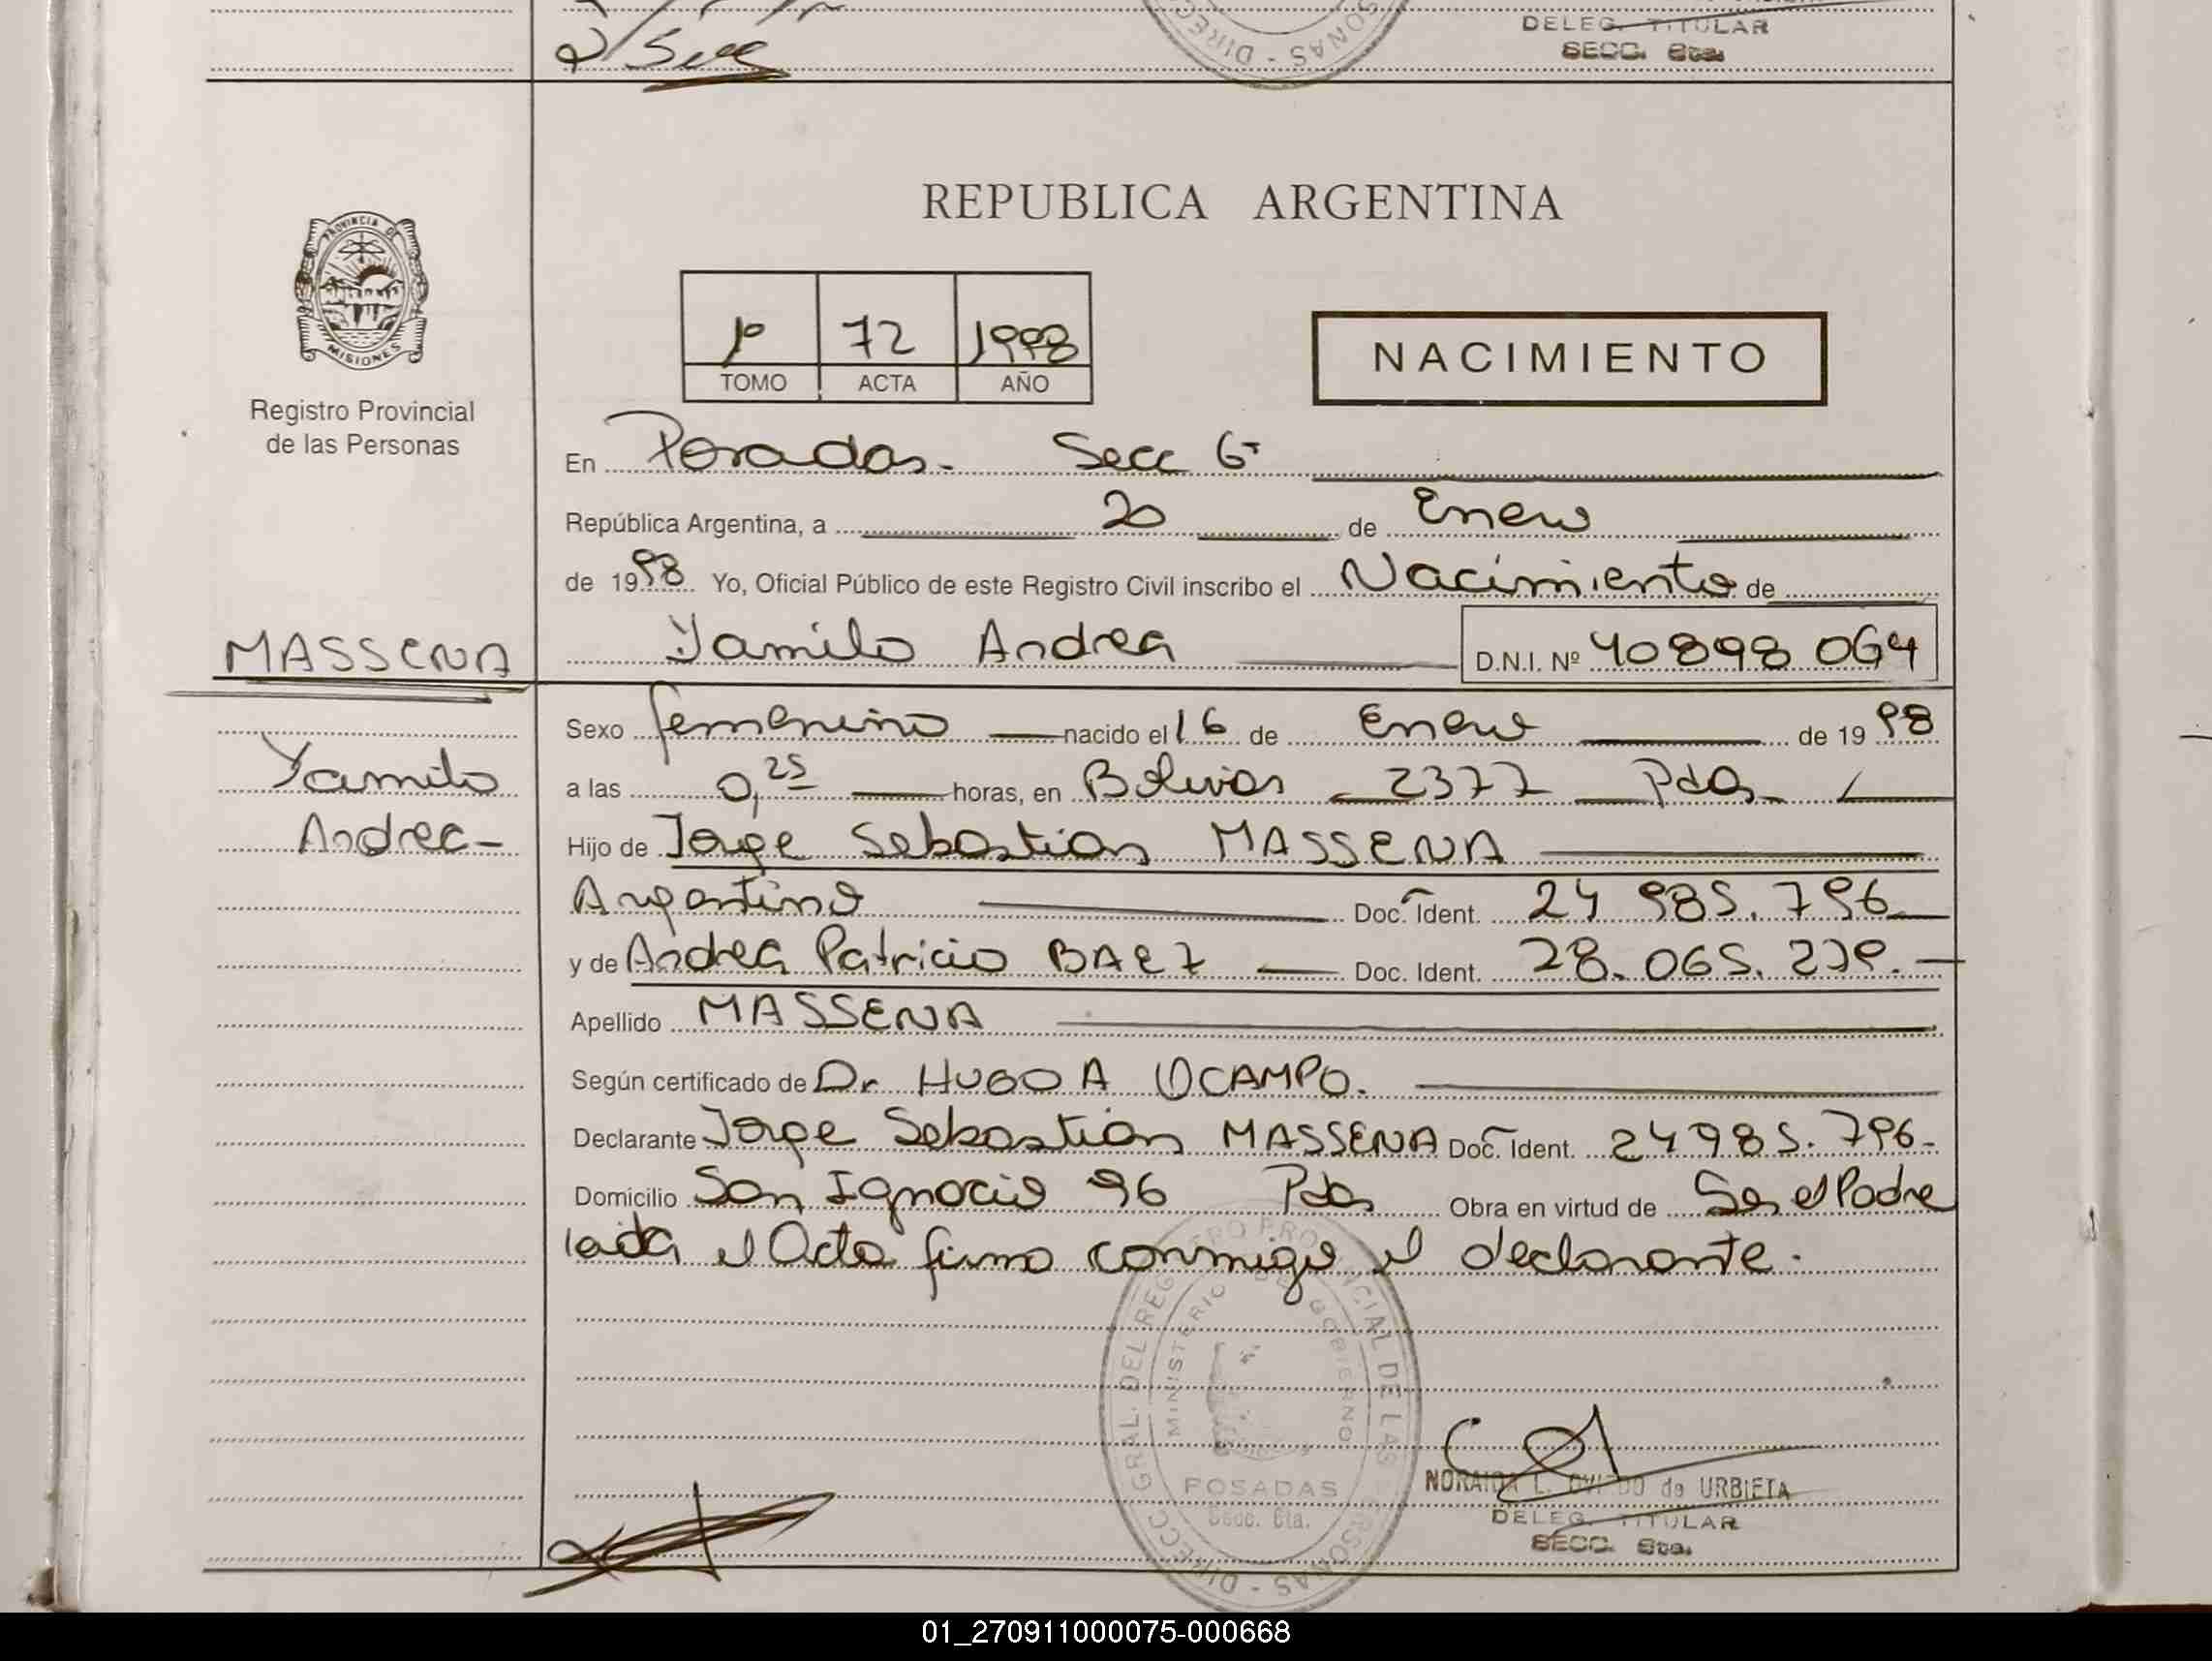 DELEG. TITULAR
SECC. 6ta.
REPUBLICA ARGENTINA
PROVINCIA DE
MISIONES
Registro Provincial
de las Personas
1º 72 1998
TOMO ACTA AÑO
NACIMIENTO
En Posadas. Secc 6ª
República Argentina, a 20 de Enero
de 1998 Yo, Oficial Público de este Registro Civil inscribo el Nacimiento de
Yamila Andrea D.N.I. Nº 40898064
MASSENA
Yamila
Andrea-
Sexo femenino nacido el 16 de Enero de 1998
a las 0,25 horas, en Bolivar 2377 Pdas
Hijo de Jorge Sebastian MASSENA
Argentino Doc. Ident. 24 985.796
y de Andrea Patricia BAEZ Doc. Ident. 28.065.279.
Apellido MASSENA
Según certificado de Dr HUGO A OCAMPO.
Declarante Jorge Sebastian MASSENA Doc. Ident. 24985.796-
Domicilio San Ignacio 96 Pdas Obra en virtud de Ser el Padre
leida el Acta firma conmigo el declarante.
DIRECC. GRAL. DEL REGISTRO PROVINCIAL DE LAS PERSONAS
MINISTERIO DE GOBIERNO
POSADAS
Secc. 6ta.
NORAIDA L. OVIEDO de URBIETA
DELEG. TITULAR
SECC. 6ta.
01_270911000075-000668